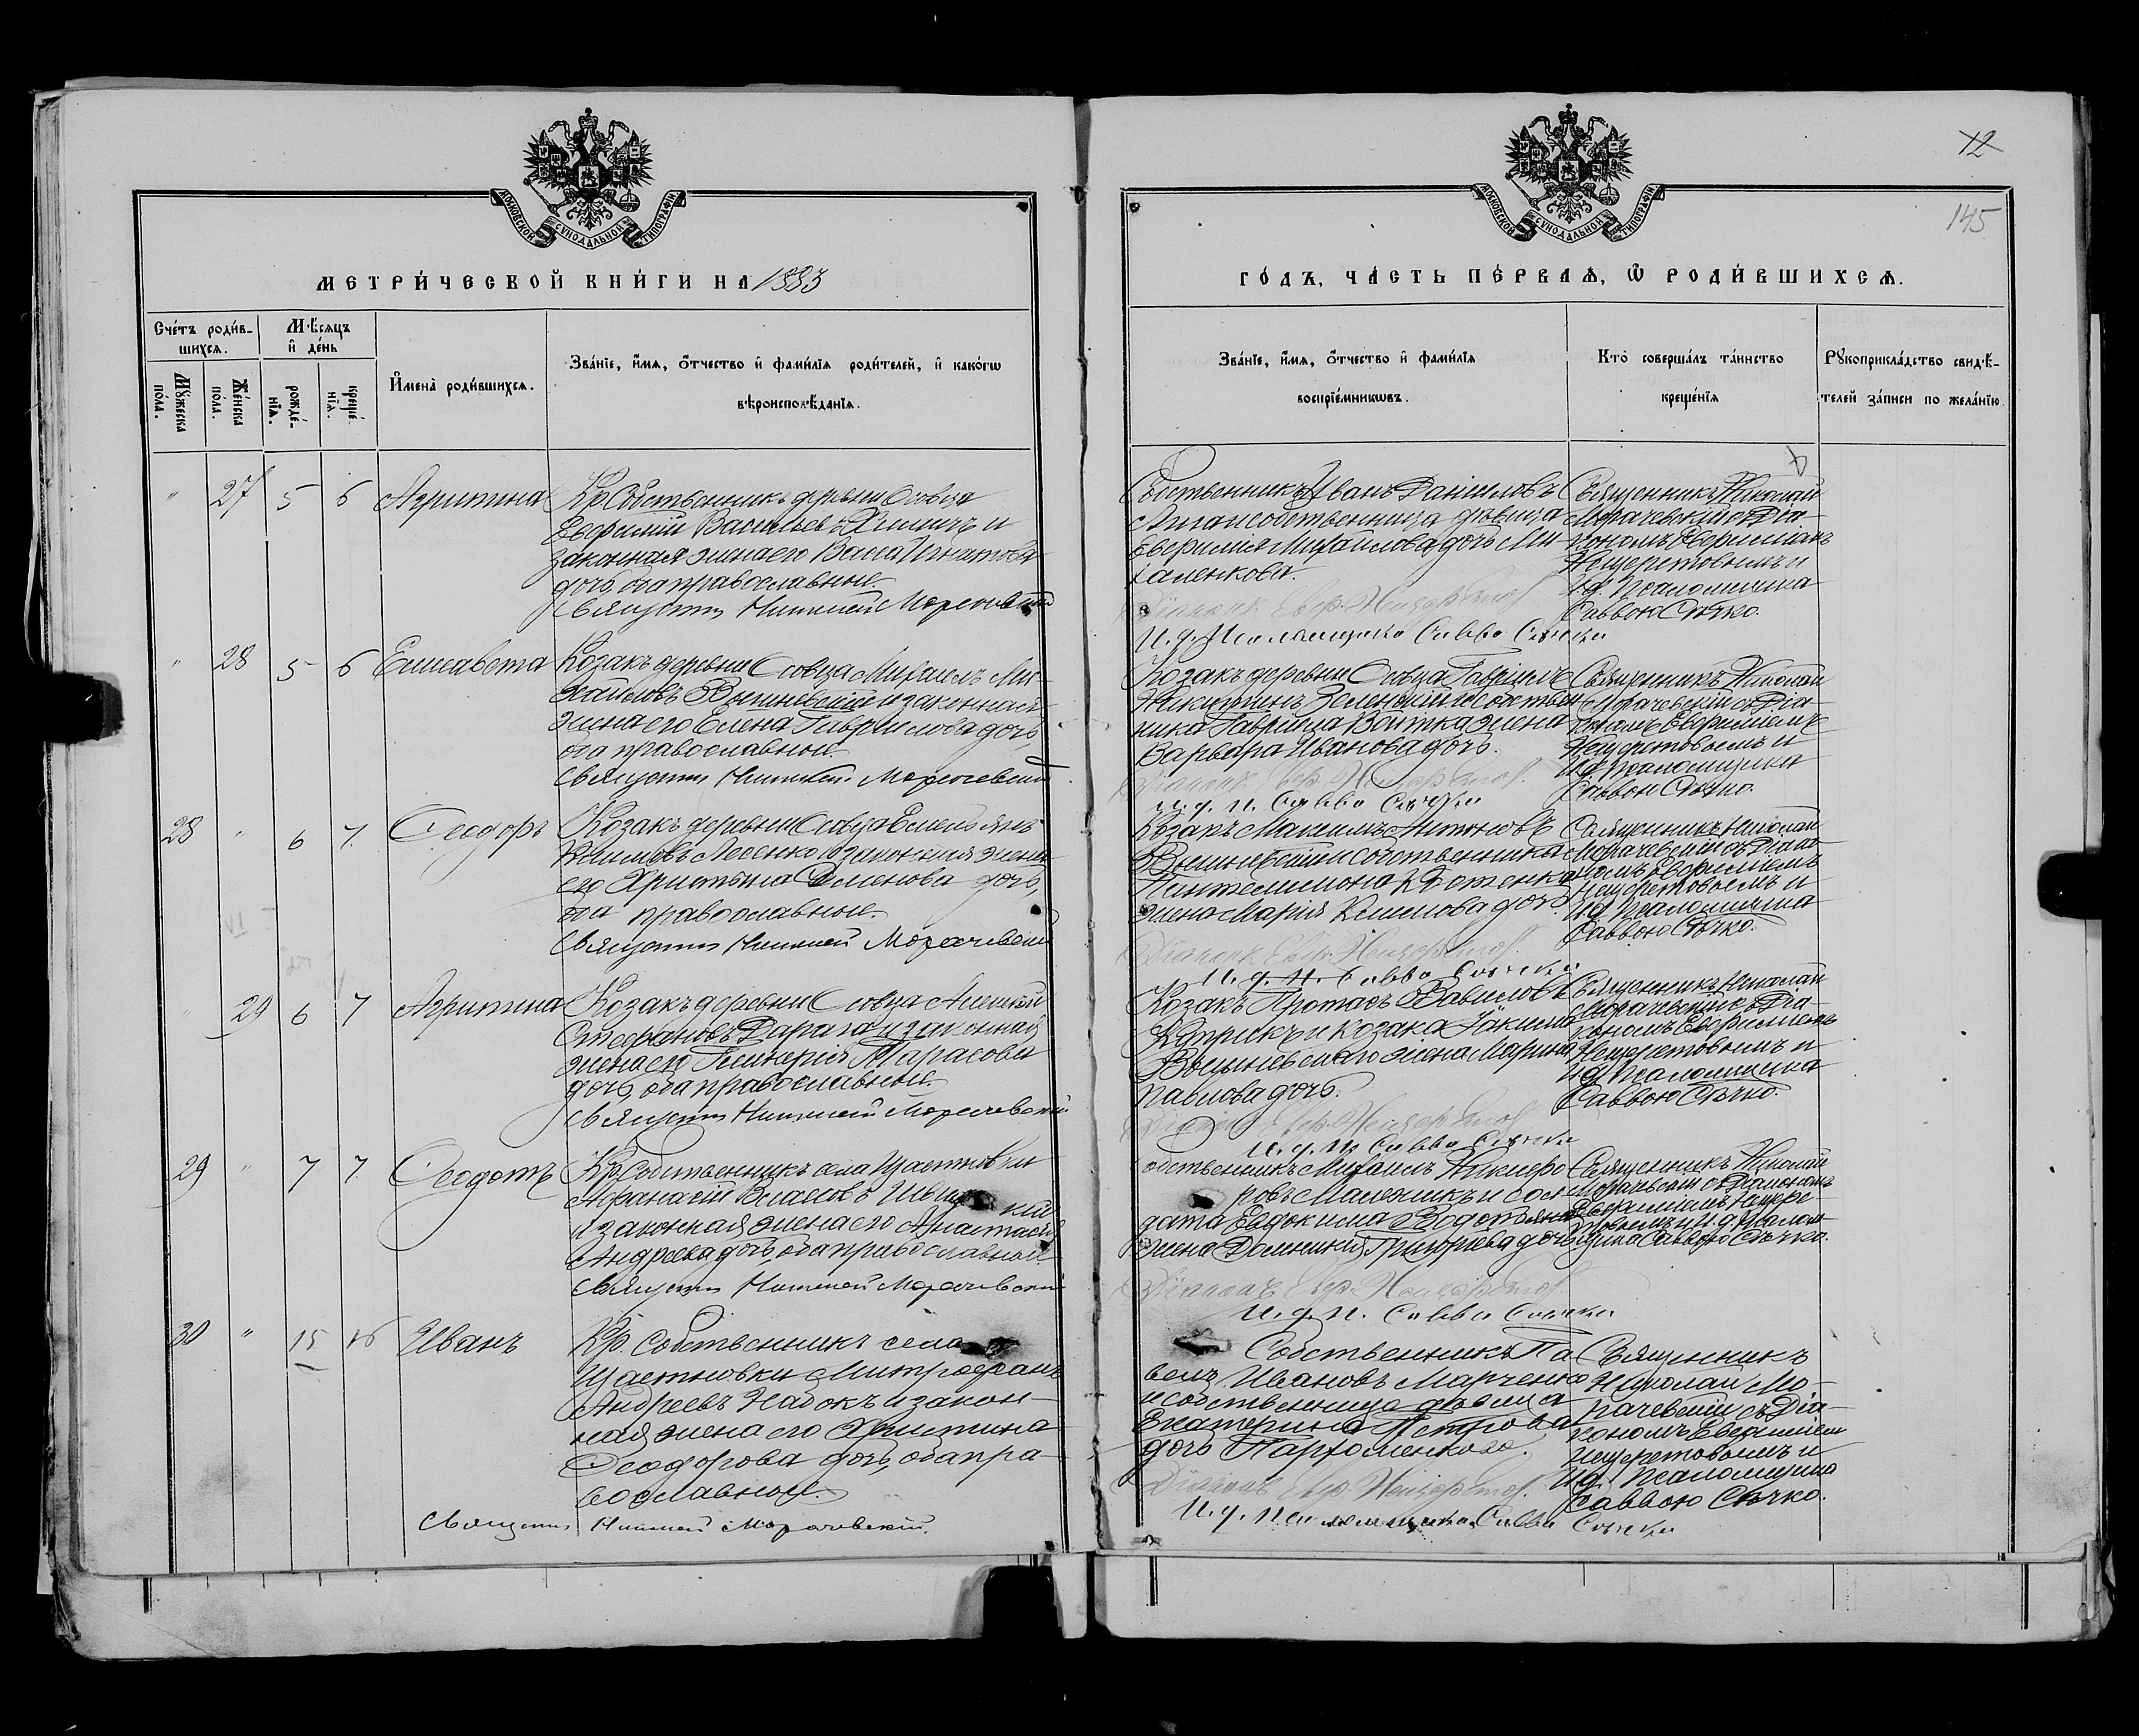 МОСКОВСКОЙ СѴНОДАЛЬНОЙ ТИПОГРАФІИ
МЕТРИ́ЧЕСКОЙ КНИ́ГИ НА 1883
Сче́тъ роди́в-
шихсѧ.
Мѣ́сѧцъ
и҆ де́нь
Мꙋ́жеска
по́ла.
Же́нска
по́ла.
рожде́-
нїѧ.
креще́-
нїѧ.
И҆мена̀ роди́вшихсѧ.
Зва́нїе, и҆́мѧ, ѻ҆́тчество и҆ фами́лїѧ роди́телей, и҆ како́гѡ
вѣроисповѣ́данїѧ.
" 27 5 6 Агрипина
Кр. Собственникъ деревни
Евфимій Васильевъ и
законная жена его Васса Игнатова
дочь, оба православные.
Священникъ Николай Морачевскій
" 28 5 6 Елисавета
Козакъ деревни Михаилъ Ми-
хайловъ Вышневскій и законная
жена его Елена Гавриилова дочь,
оба православные.
Священникъ Николай Морачевскій
28 " 6 7 Ѳеодоръ
Козакъ деревни Емельянъ
Климовъ Лесенко и законная жена
его Христина Семенова дочь,
оба православные.
Священникъ Николай Морачевскій
" 29 6 7 Агрипина
Козакъ деревни Алексѣй
Стефановъ Дарага и законная
жена его Гликерія Тарасова
дочь, оба православные.
Священникъ Николай Морачевскій
29 " 7 7 Ѳеодотъ
Кр. Собственникъ села Щастновки
Афанасій Власовъ
и законная жена его Анастасія
Андреева дочь, оба православные.
Священникъ Николай Морачевскій
30 " 15 16 Иванъ
Кр. Собственникъ села
Щастновки Митрофанъ
Андреевъ Надокъ и закон-
ная жена его Христина
Ѳеодорова дочь, оба пра-
вославные.
Священникъ Николай Морачевскій.
12
145
МОСКОВСКОЙ СѴНОДАЛЬНОЙ ТИПОГРАФІИ
ГО́ДЪ, ЧА́СТЬ ПЕ́РВАѦ, Ѽ РОДИ́ВШИХСѦ.
Зва́нїе, и҆́мѧ, ѻ҆́тчество и҆ фами́лїѧ
воспрїе́мникѡвъ.
Кто̀ соверша́лъ та́инство
креще́нїѧ
Рꙋкоприкла́дство свидѣ́-
телей за́писи по жела́нїю.
Собственникъ Иванъ Даніиловъ
и собственница дѣвица
Евфимія Михайлова дочь Ми-
халенкова.
И. д. Псаломщика Савва Сѣчко
Священникъ Николай
Морачевскій съ Діа-
кономъ Евфиміемъ
Нещеретовымъ и
И. д. Псаломщика
Саввою Сѣчко.
Козакъ деревни Гавріилъ
Никитинъ Зеленскій и собствен-
ника Гавріила Войтка жена
Варвара Иванова дочь.
И. д. п. Савва Сѣчко
Священникъ Николай
Морачевскій съ Діа-
кономъ Евфиміемъ
Нещеретовымъ и
И. д. Псаломщика
Саввою Сѣчко.
Козакъ Максимъ Антоновъ
Вышневскій и собственника
Пантелимона Котенка
жена Марія Климова дочь
И. д. п. Савва Сѣчко
Священникъ Николай
Морачевскій съ Діако-
номъ Евфиміемъ
Нещеретовымъ и
И. д. Псаломщика
Саввою Сѣчко.
Козакъ Протасъ Вавиловъ
и козака Іакима
Вышневскаго жена Марина
Павлова дочь.
И. д. п. Савва Сѣчко
Священникъ Николай
Морачевскій съ Діа-
кономъ Евфиміемъ
Нещеретовымъ и
И. д. Псаломщика
Саввою Сѣчко.
Собственникъ Михаилъ Никифо-
ровъ и сол-
дата Евдокима Водотыка
жена Домникія Григорьева дочь
И. д. п. Савва Сѣчко
Священникъ Николай
Морачевскій съ Діакономъ
Евфиміемъ Нещере-
товымъ и И. д. Псалом-
щика Саввою Сѣчко.
Собственникъ Па-
велъ Ивановъ Марченко
и собственница дѣвица
Екатерина Петрова
дочь Пархоменкова.
И. д. Псаломщика Савва Сѣчко
Священникъ
Николай Мо-
рачевскій съ Діа-
кономъ Евфиміемъ
Нещеретовымъ и
И. д. Псаломщика
Саввою Сѣчко.